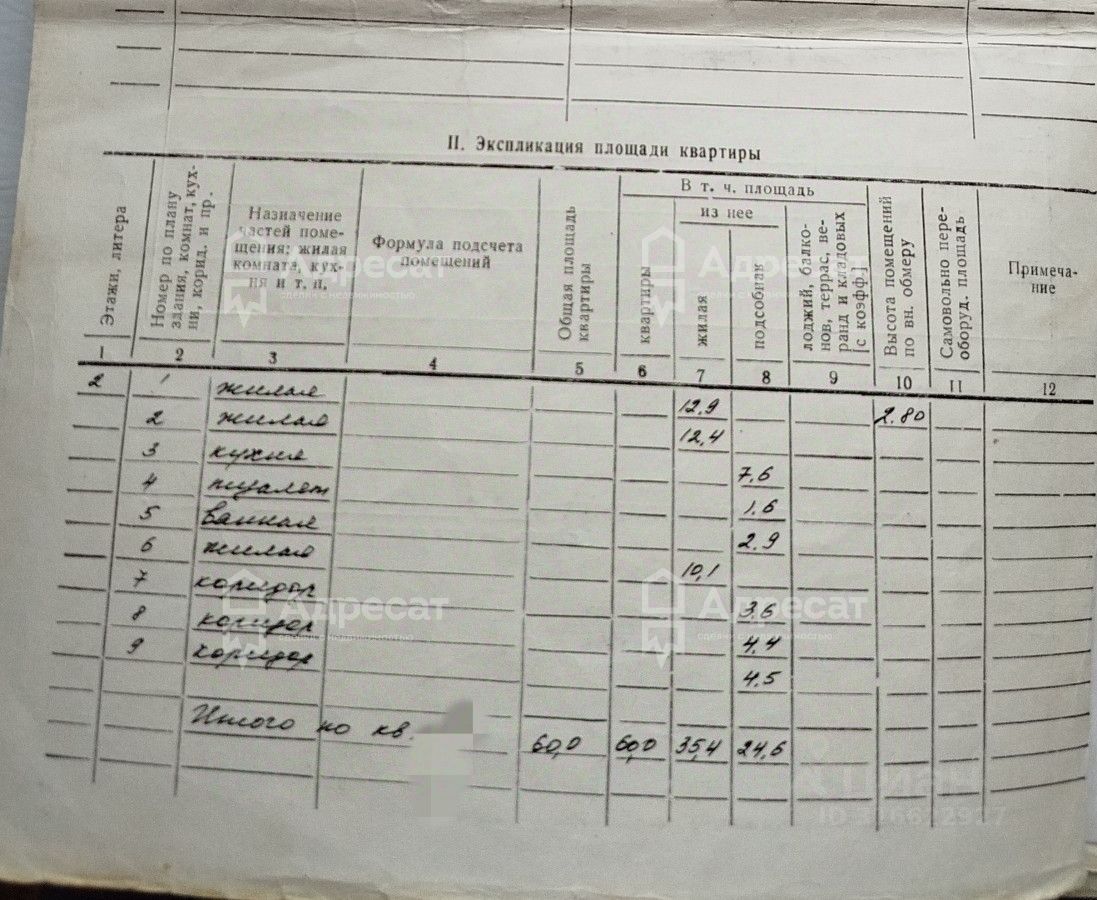 II. Экспликация площади квартиры
Этажи, литера
Номер по плану здания, комнат, кухни, корид. и пр.
Назначение частей помещения: жилая комната, кухня и т. п.
Формула подсчета помещений
Общая площадь квартиры
В т. ч. площадь
квартиры
из нее
жилая
подсобная
лоджий, балконов, террас, веранд и кладовых [с коэфф.]
Высота помещений по вн. обмеру
Самовольно переоборуд. площадь
Примечание
1 2 3 4 5 6 7 8 9 10 11 12
2 1 жилая 12,9 2.80
2 жилая 12,4
3 кухня 7,6
4 туалет 1,6
5 ванная 2,9
6 жилая 10,1
7 коридор 3,6
8 коридор 4,4
9 коридор 4,5
Итого по кв. 60,0 60,0 35,4 24,6
Адресат
сделки с недвижимостью
Адресат
сделки с недвижимостью
Адресат
сделки с недвижимостью
Адресат
сделки с недвижимостью
Циан